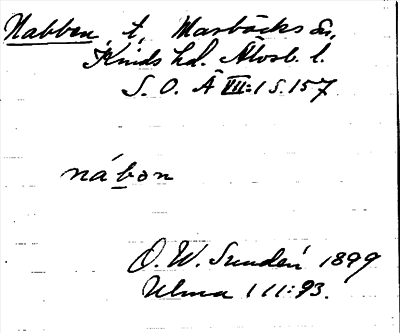 Nabben, t, Marbäcks sn,
Kinds hd. Älvsb. l.
S. O. Ä VII:1 S. 157
nábon
O. W. Sundén 1899
Ulma 111:93.